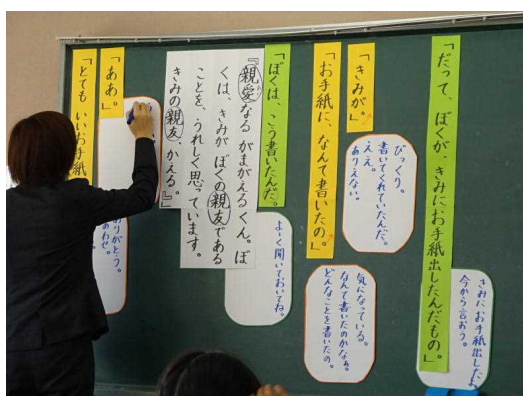 「だって、ぼくが、きみにお手紙出したんだもの。」
きみにお手紙出したよ。
今から言おう。
「きみが。」
びっくり。
書いてくれていたんだ。
ええ。
ありえない。
「お手紙に、なんて書いたの。」
気になっている。
なんて書いたのかなぁ。
どんなことを書いたの。
「ぼくは、こう書いたんだ。
よーく聞いておいてね。
『親愛なる がまがえるくん。ぼ
くは、きみが ぼくの親友である
ことを、うれしく思っています。
きみの親友、かえる。』」
「ああ。」
ありがとう。
「とても いいお手紙